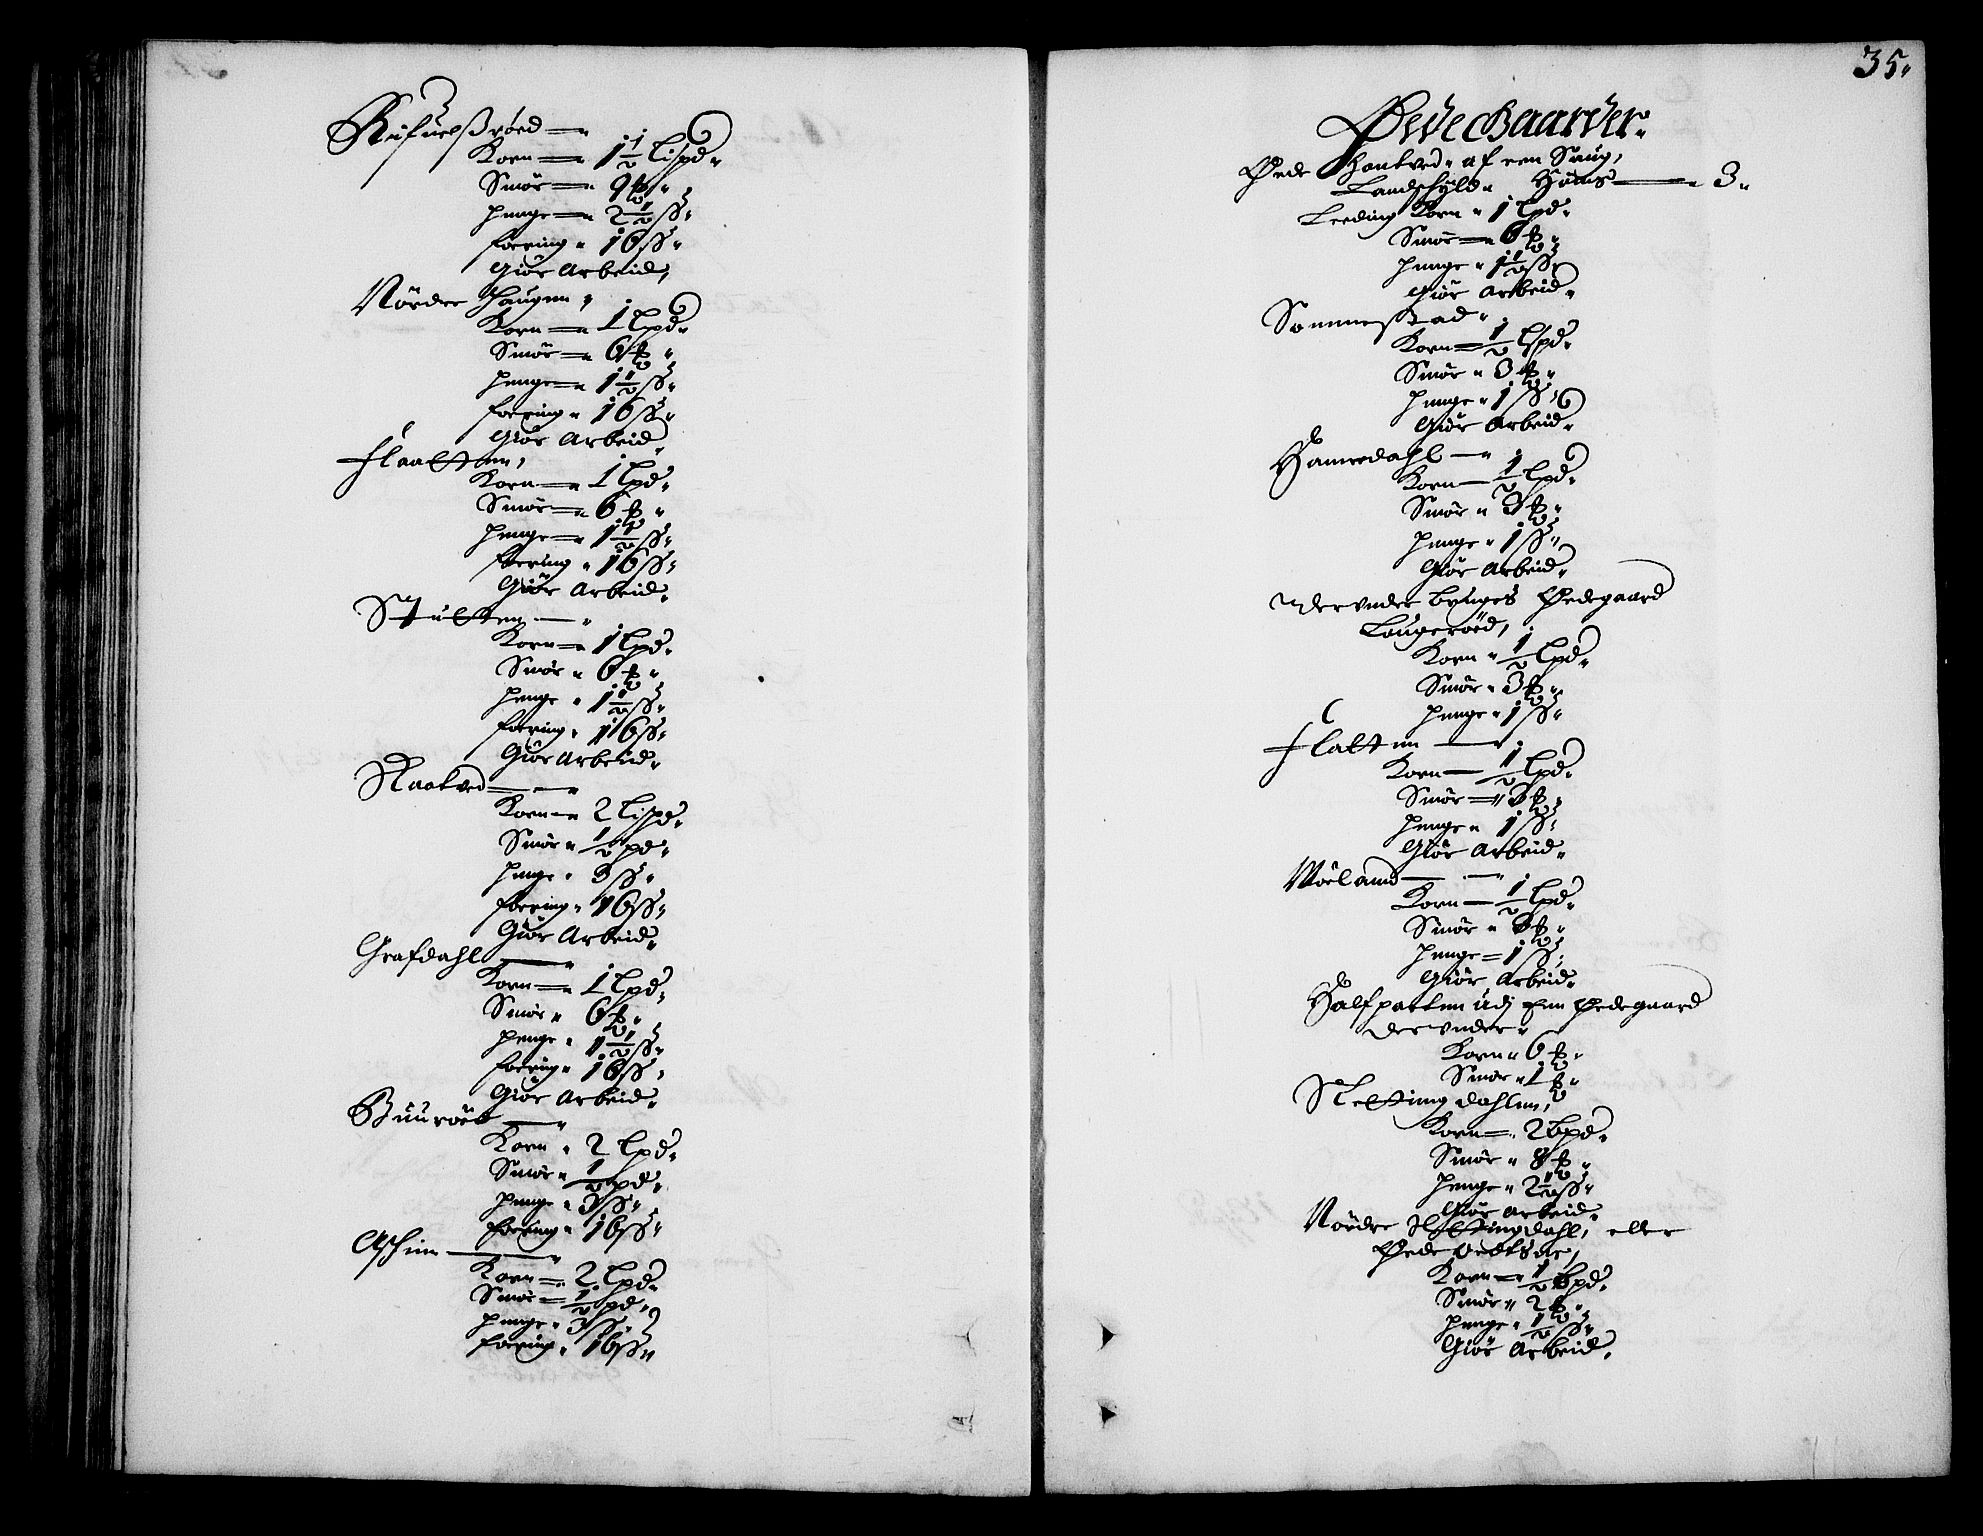 Rifuelsröed
Korn 1½ Lispd.
Smör 9 ℔.
Penge 2½ ss.
foering 16 ss.
Giör Arbeid,
Nördre Haugen,
Korn 1 Lpd.
Smör 6 ℔.
Penge 1½ ss.
foering 16 ss.
Giör Arbeid,
Flaatten,
Korn 1 Lpd.
Smör 6 ℔.
Penge 1½ ss.
foering 16 ss.
Giör Arbeid.
Stulten
Korn 1 Lpd.
Smör 6 ℔.
Penge 1½ ss.
foering 16 ss.
Giör Arbeid.
Raatved
Korn 2 Lispd.
Smör ½ pd.
Penge 3 ss.
foering 16 ss.
Giör Arbeid.
Grafdahl
Korn 1 Lpd.
Smör 6 ℔.
Penge 1½ ss.
foering 16 ss.
Giör Arbeid.
Buuröed
Korn 2 Lpd.
Smör ½ pd.
Penge 3 ss.
foering 16 ss.
Aschim
Korn 2 Lpd.
Smör ½ pd.
Penge 3 ss.
foering 16 ss.
35.
Øede Gaarder.
Øede Hontved. af een Saug,
Landschyld. Höns 3.
Leeding Korn 1 Lpd.
Smör 6 ℔.
Penge 1½ ss.
Giör Arbeid.
Sommestad.
Korn ½ Lspd.
Smör 3 ℔.
Penge 1 ss.
Giör Arbeid.
Hannedahl
Korn ½ Lpd.
Smör 3 ℔.
Penge 1 ss.
Giör Arbeid.
Derunder bruges Ødegaard
Laugeröed,
Korn ½ Lpd.
Smör 3 ℔.
Penge 1 ss.
Flatten
Korn ½ Lpd.
Smör 3 ℔.
Penge 1 ss.
Giör Arbeid.
Möeland
Korn ½ Lpd.
Smör 3 ℔.
Penge 1 ss.
Giör Arbeid.
Halfparten udj Een Ødegaard
derunder.
Korn 6 ℔.
Smör 1 ℔.
Slettingdahlen,
Korn 2 Lpd.
Smör 8 ℔.
Penge 2½ ss.
Giör Arbeid.
Nördre Slettingdahl, eller
Øede
Korn ½ Lpd.
Smör 2 ℔.
Penge ½ ss.
Giör Arbeid.